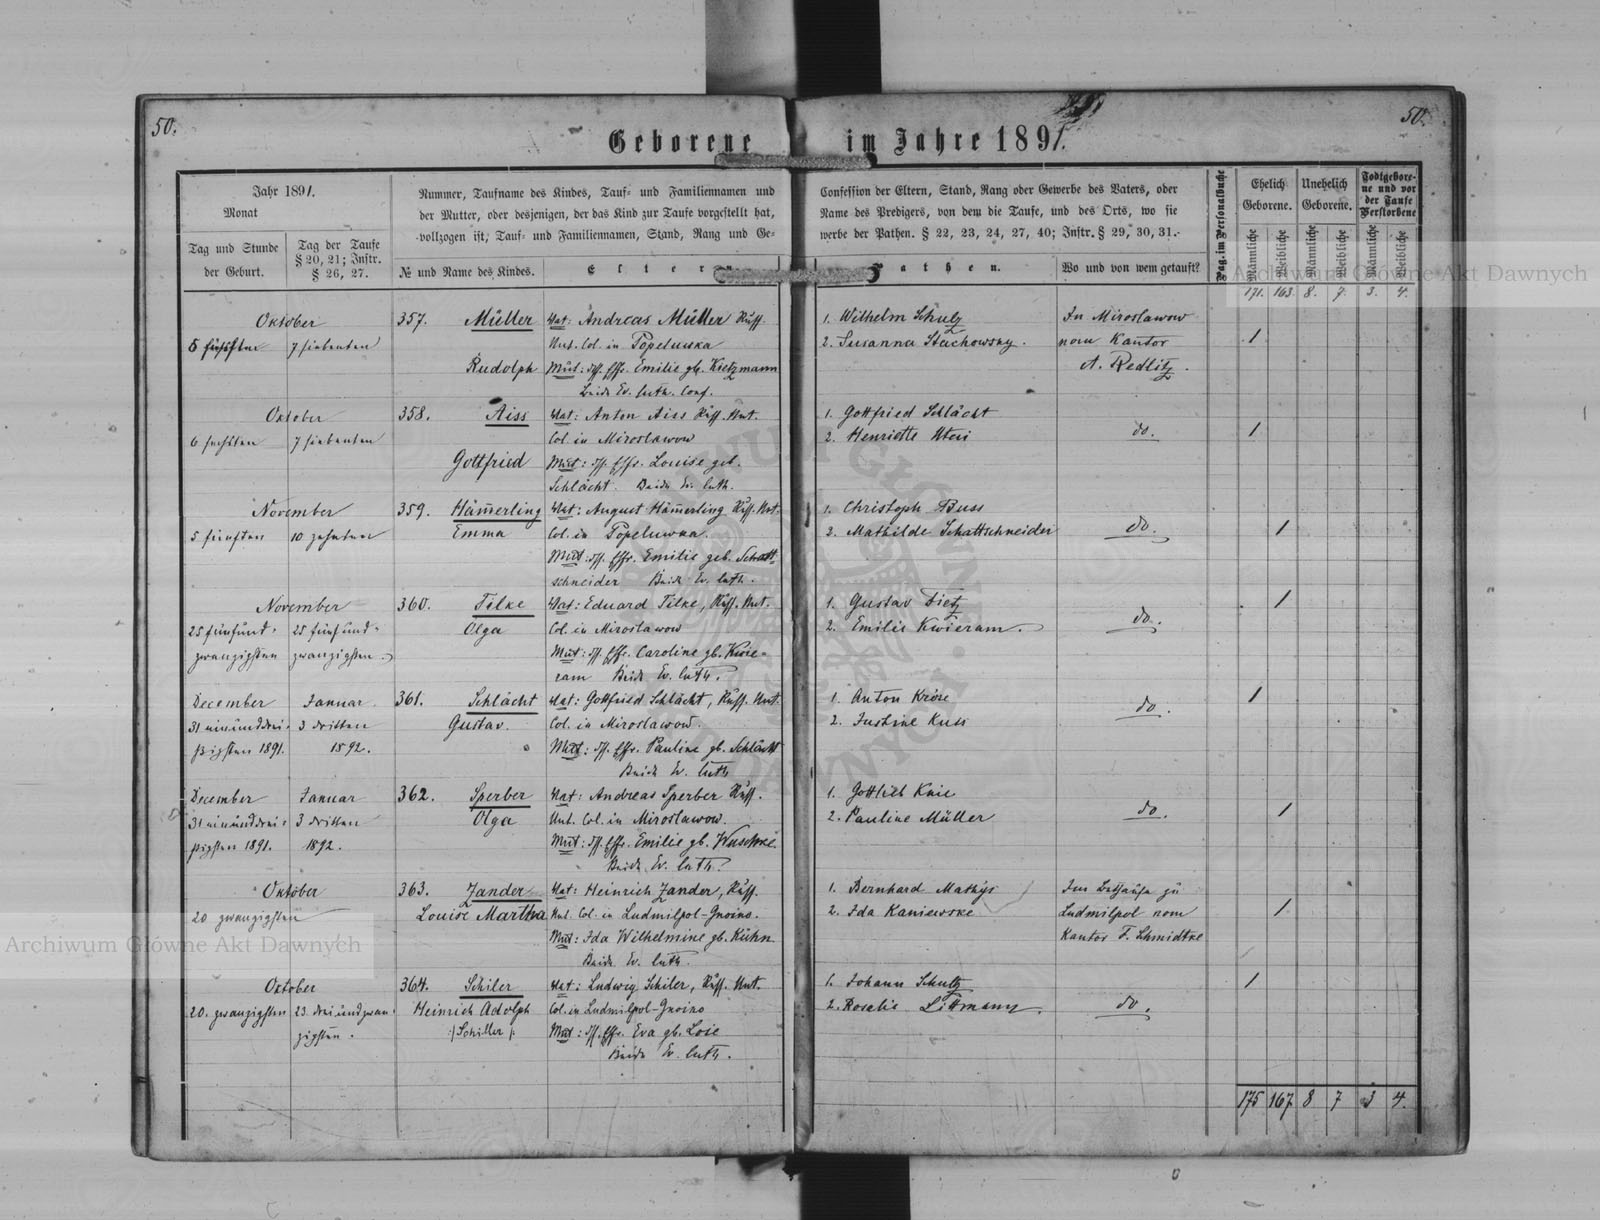 50.
50.
Geborene im Jahre 1891.
Jahr 1891.
Monat
Tag und Stunde
der Geburt.
Tag der Taufe
§ 20, 21; Instr.
§ 26, 27.
Nummer, Taufname des Kindes, Tauf- und Familiennamen und
der Mutter, oder desjenigen, der das Kind zur Taufe vorgestellt hat,
vollzogen ist; Tauf- und Familiennamen, Stand, Rang und Ge-
№ und Name des Kindes.
Eltern.
Confession der Eltern, Stand, Rang oder Gewerbe des Vaters, oder
Name des Predigers, von dem die Taufe, und des Orts, wo sie
werbe der Pathen. § 22, 23, 24, 27, 40; Instr. § 29, 30, 31.
Pathen.
Wo und von wem getauft?
Pag. im Personalbuche
Ehelich
Geborene.
Unehelich
Geborene.
Todtgebore-
ne und vor
der Taufe
Verstorbene
Männliche
Weibliche
Männliche
Weibliche
Männliche
Weibliche
171. 163. 8. 7. 3. 4.
Oktober
7 siebenten
357. Müller
Rudolph
Vat: Andreas Müller Russ.
Unt. Col. in Topeluwka
Mut: dss. Ehfr. Emilie gb. Kietzmann
Beide Ev. luth. Conf.
1. Wilhelm Schulz
2. Susanna Stachowsky.
In Miroslawow
vom Kantor
A. Redlitz.
1
Oktober
6 sechsten
7 siebenten
358. Aiss
Gottfried
Vat: Anton Aiss Russ. Unt.
Col. in Miroslawow
Mut: dss. Ehfr. Louise geb.
Schlächt. Beide Ev. luth.
1. Gottfried Schlächt
2. Henriette
do.
1
November
5 fünften
10 zehnten
359. Hämerling
Emma
Vat: August Hämerling Russ. Unt.
Col. in Topeluwka.
Mut: dss. Ehfr. Emilie geb. Schatt-
schneider Beide Ev. luth.
1. Christoph Buss
2. Mathilde Schattschneider
do.
1
November
25 fünfund-
zwanzigsten
25 fünfund-
zwanzigsten.
360. Tilke
Olga
Vat: Eduard Tilke, Russ. Unt.
Col. in Miroslawow
Mut: dss. Ehfr. Caroline gb. Kwie-
ram Beide Ev. luth.
1. Gustav Tietz
2. Emilie Kwieram.
do.
1
December
31 einunddrei-
ssigsten 1891.
Januar
3 dritten
1892.
361. Schlächt
Gustav.
Vat: Gottfried Schlächt, Russ. Unt.
Col. in Miroslawow.
Mut: dss. Ehfr. Pauline gb. Schlächt
Beide Ev. luth.
1. Anton
2. Justine Kuss
do.
1
December
31 einunddrei-
ssigsten 1891.
Januar
3 dritten
1892.
362. Sperber
Olga
Vat: Andreas Sperber Russ.
Unt. Col. in Miroslawow.
Mut: dss. Ehfr. Emilie gb. Wuschke.
Beide Ev. luth.
1. Gottlieb
2. Pauline Müller
do.
1
Oktober
20 zwanzigsten
363. Zander
Louise Martha
Vat: Heinrich Zander, Russ.
Unt. Col. in Ludmilpol-Gnoino.
Mut: Ida Wilhelmine gb. Kühn.
Beide Ev. luth.
1. Bernhard Mathijs
2. Ida Kaniewske
Im Bethause zu
Ludmilpol vom
Kantor F. Schmidtke
1
Oktober
20. zwanzigsten
23. dreiundzwan-
zigsten.
364. Schiler
Heinrich Adolph
:/Schiller/:
Vat: Ludwig Schiler, Russ. Unt.
Col. in Ludmilpol-Gnoino
Mut: dss. Ehfr. Eva gb. Loie
Beide Ev. luth.
1. Johann Schultz
2. Rosalie Littmann.
do.
1
175 167 8 7 3 4.
Archiwum Główne Akt Dawnych
Archiwum Główne Akt Dawnych